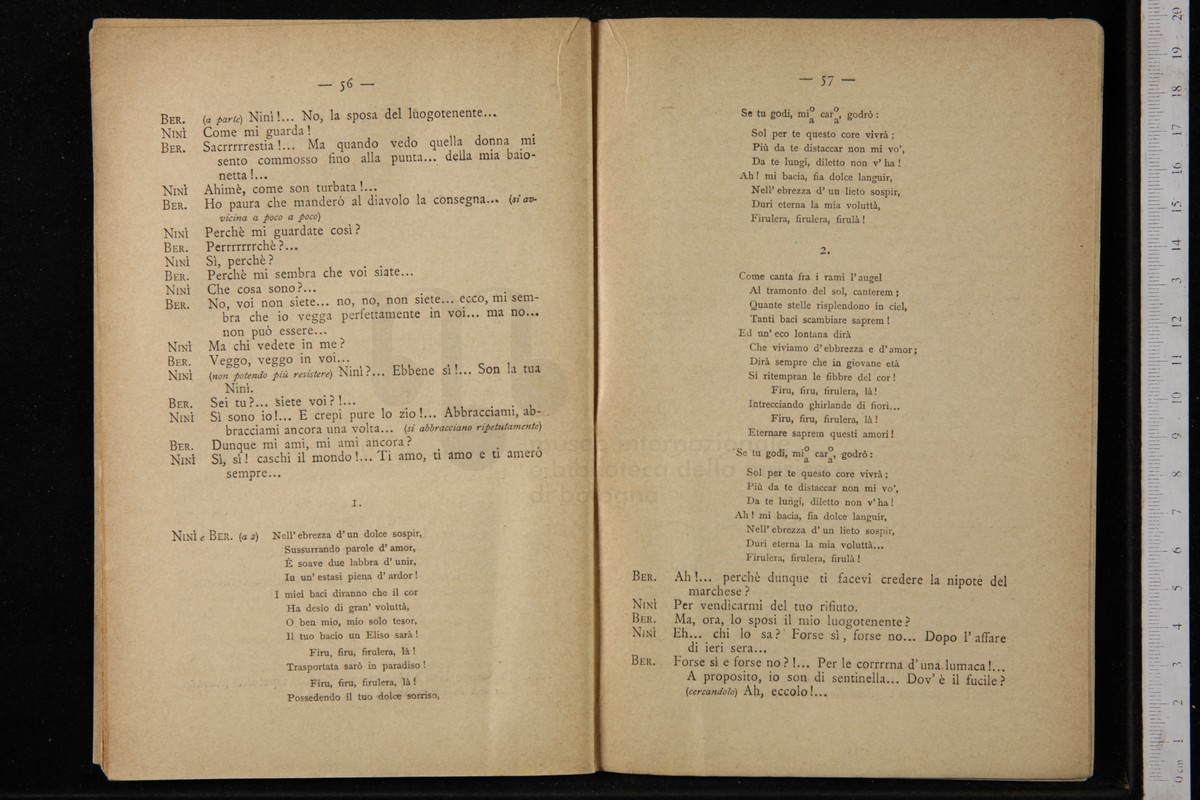 — 56 —
BER. (a parte) Ninì!... No, la sposa del luogotenente...
NINÌ Come mi guarda!
BER. Sacrrrrrestia!... Ma quando vedo quella donna mi
sento commosso fino alla punta... della mia baio-
netta!...
NINÌ Ahimè, come son turbata!...
BER. Ho paura che manderò al diavolo la consegna... (si av-
vicina a poco a poco)
NINÌ Perchè mi guardate così?
BER. Perrrrrrrchè?...
NINÌ Sì, perchè?
BER. Perchè mi sembra che voi siate...
NINÌ Che cosa sono?...
BER. No, voi non siete... no, no, non siete... ecco, mi sem-
bra che io vegga perfettamente in voi... ma no...
non può essere...
NINÌ Ma chi vedete in me?
BER. Veggo, veggo in voi...
NINÌ (non potendo più resistere) Ninì?... Ebbene sì!... Son la tua
Ninì.
BER. Sei tu?... siete voi?!...
NINÌ Sì sono io!... E crepi pure lo zio!... Abbracciami, ab-
bracciami ancora una volta... (si abbracciano ripetutamente)
BER. Dunque mi ami, mi ami ancora?
NINÌ Sì, sì! caschi il mondo!... Ti amo, ti amo e ti amerò
sempre...
I.
NINÌ e BER. (a 2) Nell' ebrezza d' un dolce sospir,
Sussurrando parole d' amor,
È soave due labbra d' unir,
In un' estasi piena d' ardor!
I miei baci diranno che il cor
Ha desio di gran' voluttà,
O ben mio, mio solo tesor,
Il tuo bacio un Eliso sarà!
Firu, firu, firulera, là!
Trasportata sarò in paradiso!
Firu, firu, firulera, là!
Possedendo il tuo dolce sorriso,
— 57 —
Se tu godi, mi° a car° a, godrò:
Sol per te questo core vivrà;
Più da te distaccar non mi vo',
Da te lungi, diletto non v' ha!
Ah! mi bacia, fia dolce languir,
Nell' ebrezza d' un lieto sospir,
Duri eterna la mia voluttà,
Firulera, firulera, firulà!
2.
Come canta fra i rami l' augel
Al tramonto del sol, canterem;
Quante stelle risplendono in ciel,
Tanti baci scambiare saprem!
Ed un' eco lontana dirà
Che viviamo d' ebbrezza e d' amor;
Dirà sempre che in giovane età
Si ritempran le fibbre del cor!
Firu, firu, firulera, là!
Intrecciando ghirlande di fiori...
Firu, firu, firulera, là!
Eternare saprem questi amori!
Se tu godi, mi° a car° a, godrò:
Sol per te questo core vivrà;
Più da te distaccar non mi vo',
Da te lungi, diletto non v' ha!
Ah! mi bacia, fia dolce languir,
Nell' ebrezza d' un lieto sospir,
Duri eterna la mia voluttà...
Firulera, firulera, firulà!
BER. Ah!... perchè dunque ti facevi credere la nipote del
marchese?
NINÌ Per vendicarmi del tuo rifiuto.
BER. Ma, ora, lo sposi il mio luogotenente?
NINÌ Eh... chi lo sa? Forse sì, forse no... Dopo l' affare
di ieri sera...
BER. Forse sì e forse no?!... Per le corrrrna d' una lumaca!...
A proposito, io son di sentinella... Dov' è il fucile?
(cercandolo) Ah, eccolo!...
museo internazionale
e biblioteca della
di bologna
0 cm 1 2 3 4 5 6 7 8 9 10 11 12 13 14 15 16 17 18 19 20